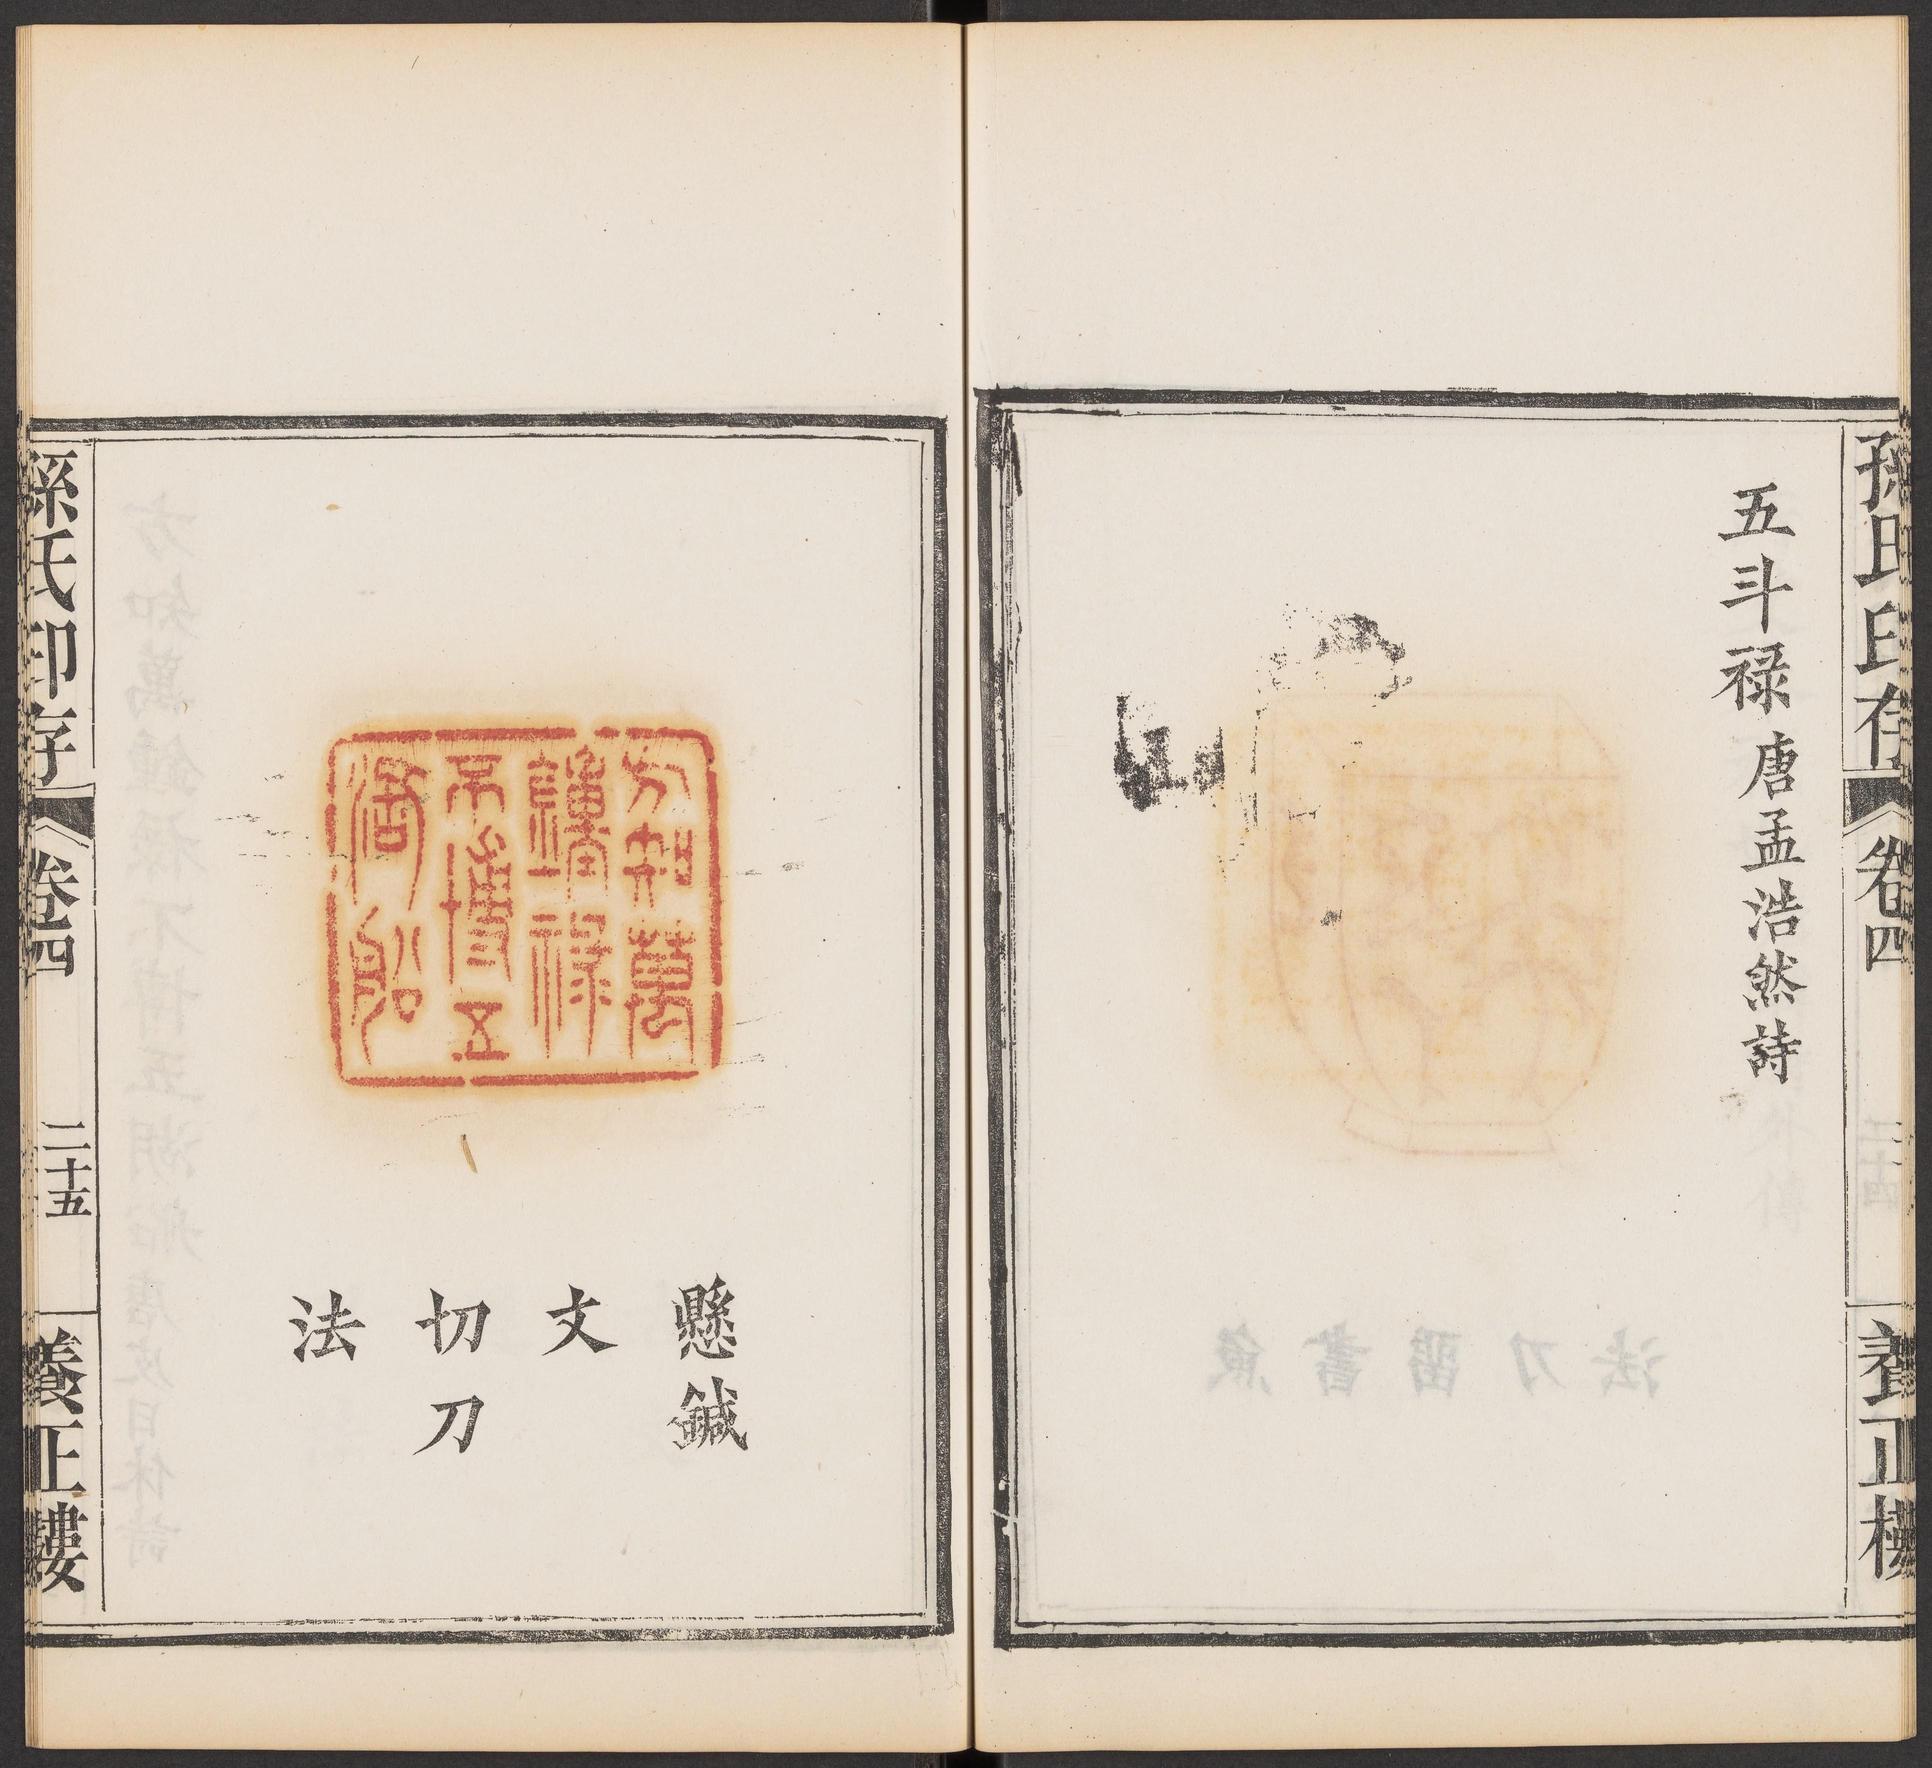 孫氏印存
卷四
養正樓
五斗祿 唐孟浩然詩
方知萬
鍾祿
不博五
湖船
懸鍼
文
切刀
法
孫氏印存
卷四
二十五
養正樓